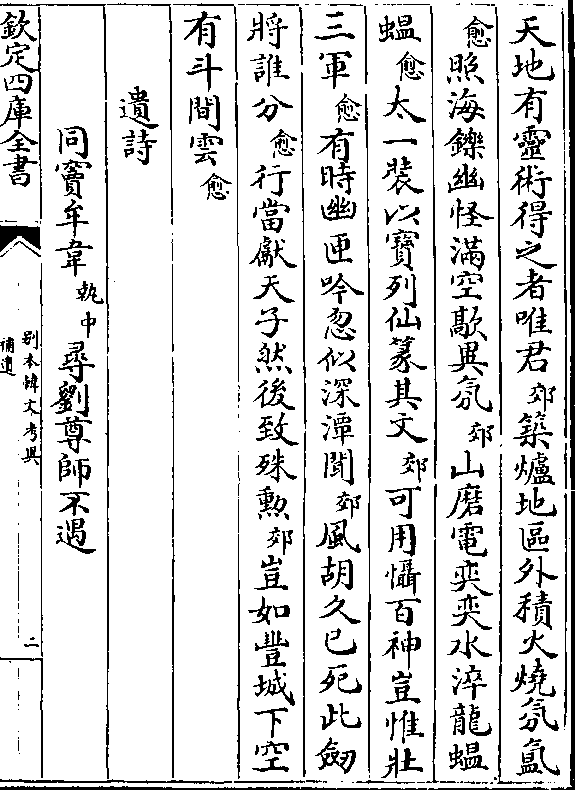 天地有靈術得之者唯君郊築爐地區外積火燒氛氲
愈照海鑠幽怪滿空歊異氛郊山磨電奕奕水淬龍蝹
蝹愈太一裝以寶列仙篆其文郊可用懾百神豈惟壯
三軍愈有時幽匣吟忽似深潭聞郊風胡久已死此劒
將誰分愈行當獻天子然後致殊勳郊豈如豐城下空
有斗間雲愈
遺詩
同竇牟韋執中尋劉尊師不遇
欽定四庫全書
別本韓文考異
補遺
二